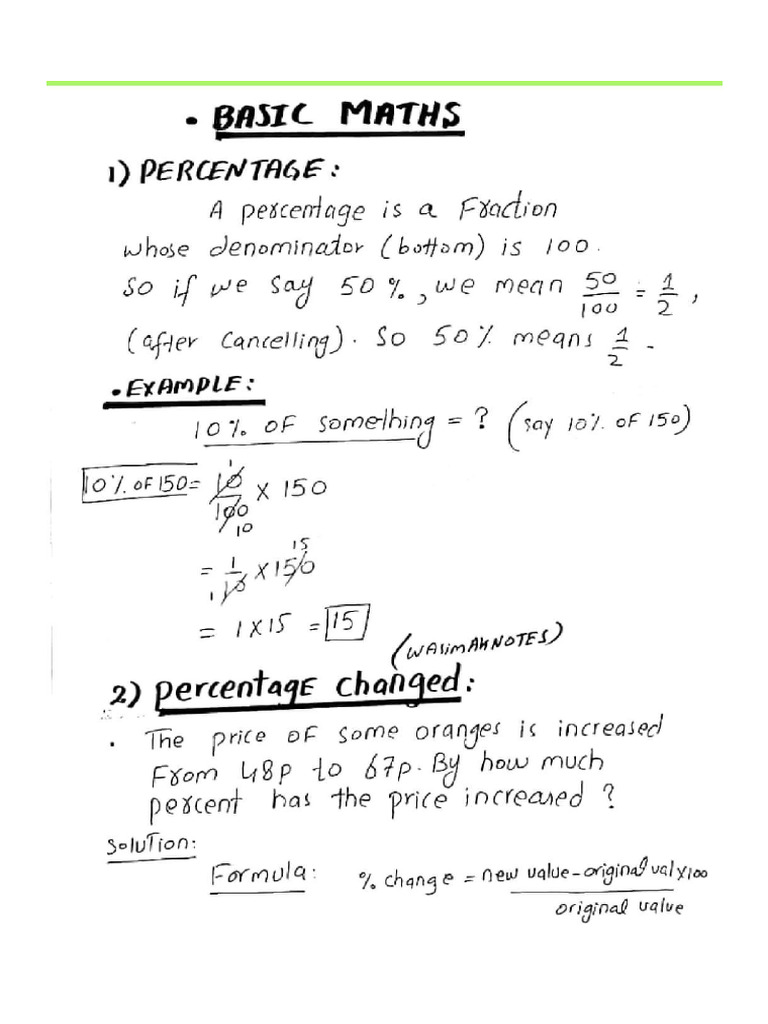 • BASIC MATHS
1) PERCENTAGE:
A percentage is a Fraction
whose denominator (bottom) is 100.
So if we say 50%, we mean 50/100 = 1/2,
(after cancelling). So 50% means 1/2.
• EXAMPLE:
10% OF something = ? (say 10% OF 150)
10% OF 150 = 10/100 × 150
1
10
= 1/10 × 150
15
1
= 1 × 15 = 15
(WASIMAKNOTES)
2) percentage changed:
• The price of some oranges is increased
From 48p to 67p. By how much
percent has the price increased ?
Solution:
Formula: % change = new value - original val x100
original value